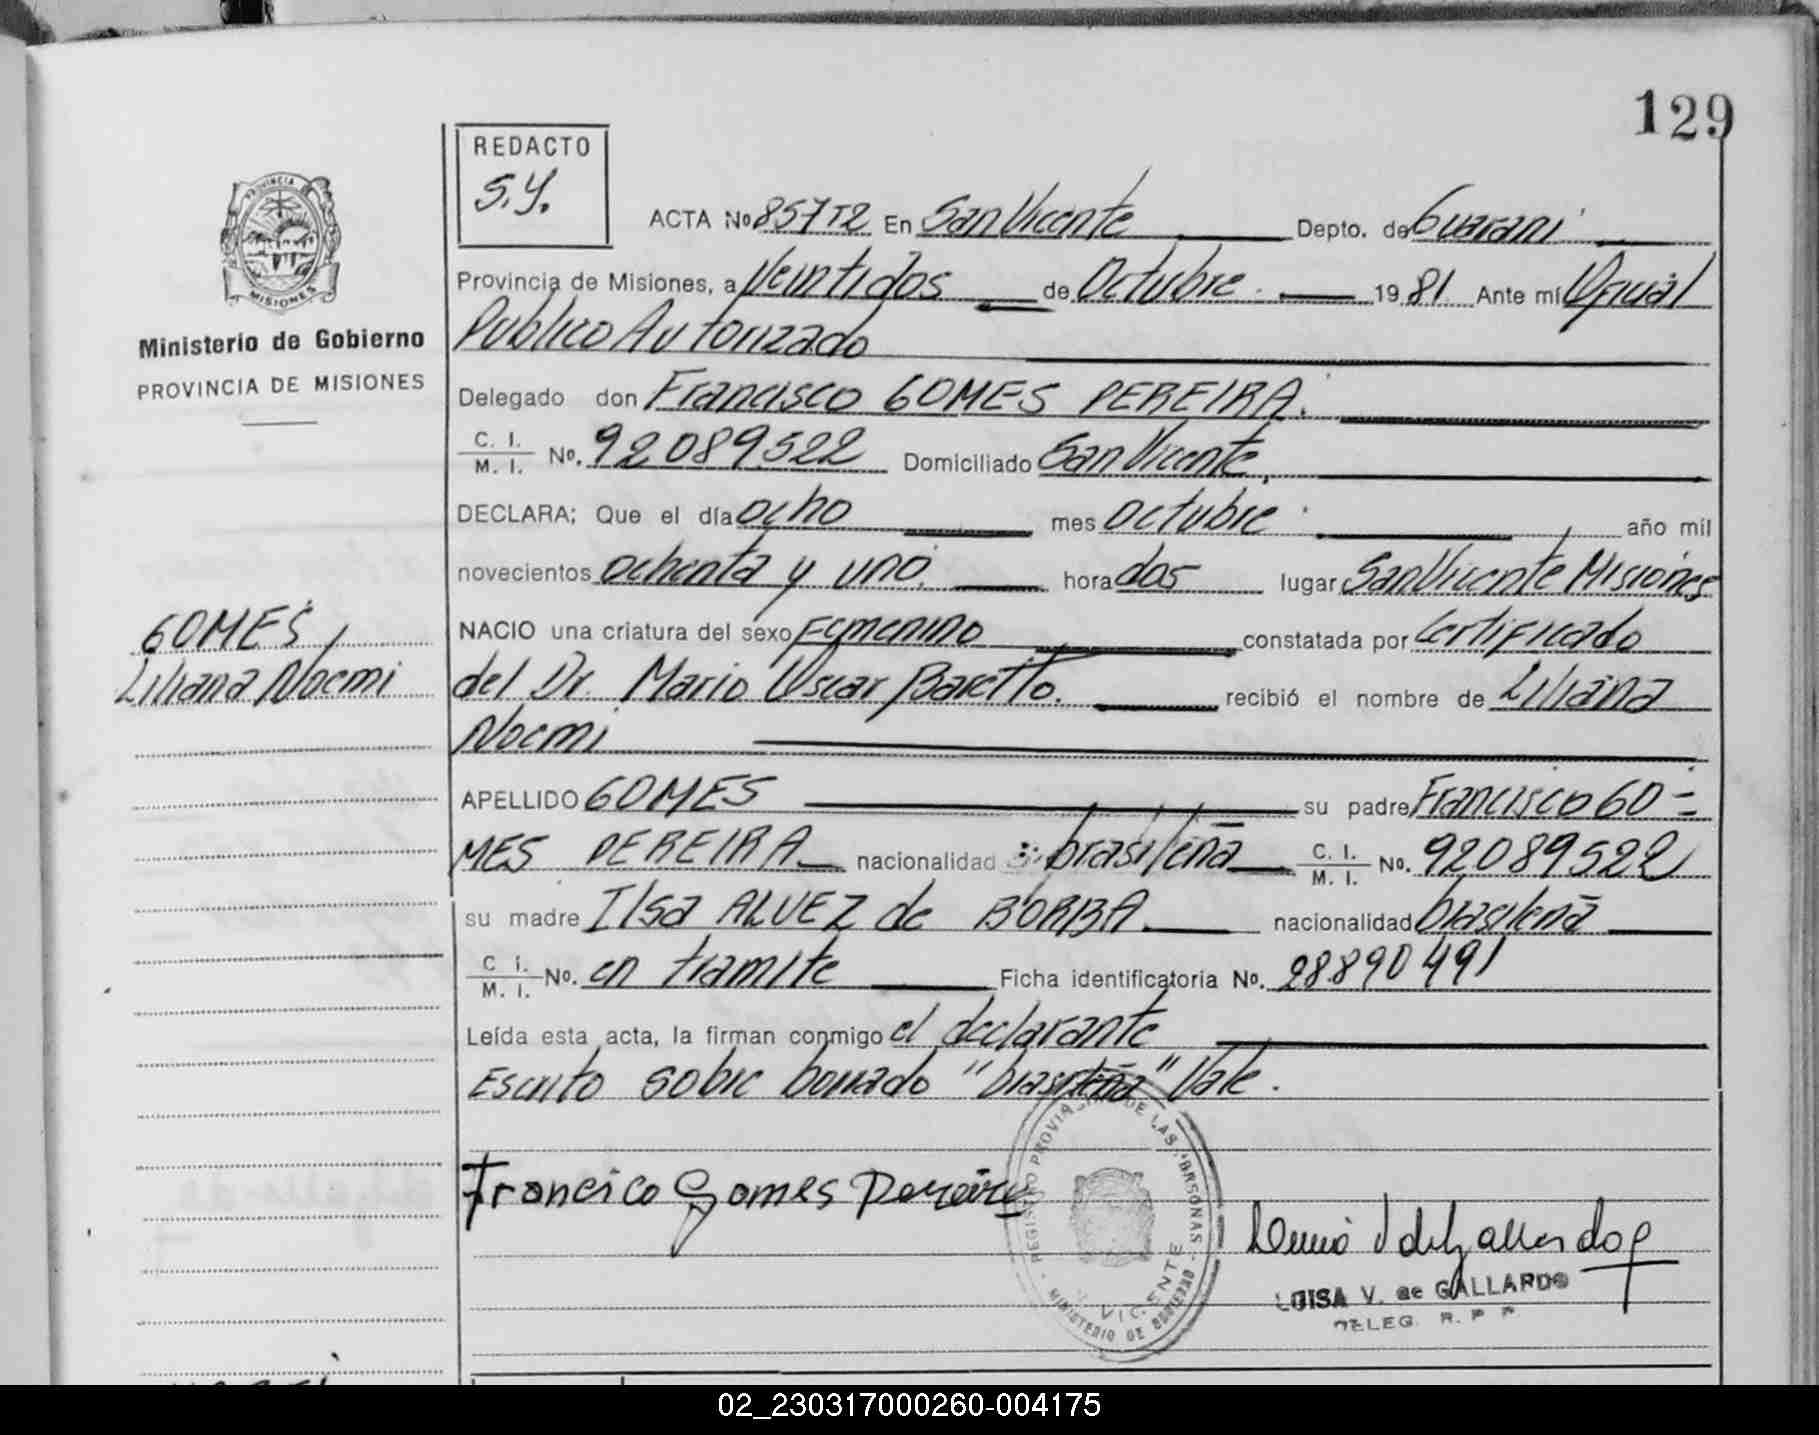 129
REDACTO
S.Y.
ACTA Nº 857T2 En San Vicente Depto. de Guarani
Provincia de Misiones, a Veintidos de Octubre 1981 Ante mí Oficial
Publico Autorizado
PROVINCIA
MISIONES
Ministerio de Gobierno
PROVINCIA DE MISIONES
Delegado don Francisco GOMES PEREIRA.
C. I. / M. I. Nº. 92089522 Domiciliado San Vicente,
DECLARA; Que el día ocho mes octubre año mil
novecientos ochenta y uno. hora dos lugar San Vicente Misiones
GOMES,
Liliana Noemi
NACIO una criatura del sexo Femenino constatada por Certificado
del Dr. Mario Oscar Baretto. recibió el nombre de Liliana
Noemi
APELLIDO GOMES su padre Francisco GO=
MES PEREIRA nacionalidad brasileña C. I. / M. I. Nº. 92089522
su madre Ilsa ALVEZ de BORBA nacionalidad brasileña
C. I. / M. I. Nº. en tramite Ficha identificatoria Nº. 28890491
Leída esta acta, la firman conmigo el declarante
Escrito sobre borrado "brasileña" Vale.
Francico Gomes Pereira
REGISTRO PROVINCIAL DE LAS PERSONAS
VICENTE
MINISTERIO DE GOBIERNO
LUISA V. de GALLARDO
DELEG. R. P. P.
02_230317000260-004175